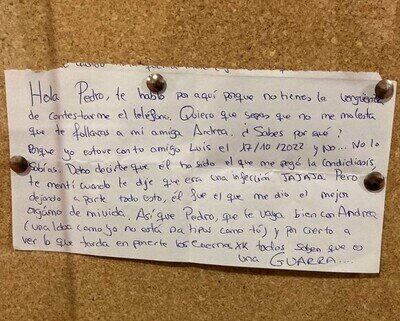 Hola Pedro, te hablo por aquí porque no tienes la vergüenza
de contestarme el teléfono. Quiero que sepas que no me molesta
que te follaras a mi amiga Andrea. ¿Sabes por qué?
Porque yo estuve con tu amigo Luis el 17/10/2022 y No... No lo
sabías. Debo decirte que él ha sido el que me pegó la candidiasis,
te mentí cuando te dije que era una infección JAJAJA. Pero
dejando a parte todo esto, él fue el que me dio el mejor
orgasmo de mi vida. Así que Pedro, que te vaya bien con Andrea
(una loba como yo no está pa tipos como tú) y por cierto a
ver lo que tarda en ponerte los cuernos XK todos saben que es
una GUARRA....